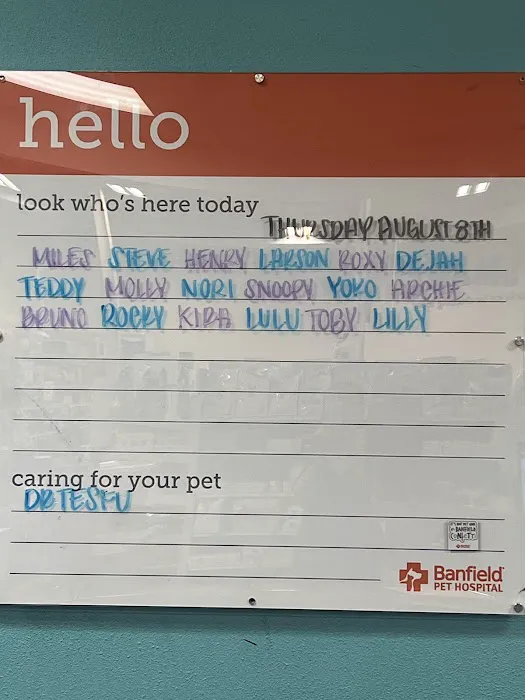 hello
look who's here today
THURSDAY AUGUST 8TH
MILES STEVE HENRY LARSON ROXY DEJAH
TEDDY MOLLY NORI SNOOPY YOKO ARCHIE
BRUNO ROCKY KIRA LULU TOBY LILLY
caring for your pet
DR TESFU
Banfield
PET HOSPITAL